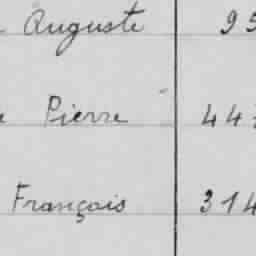 Auguste 95
Pierre 44
François 314